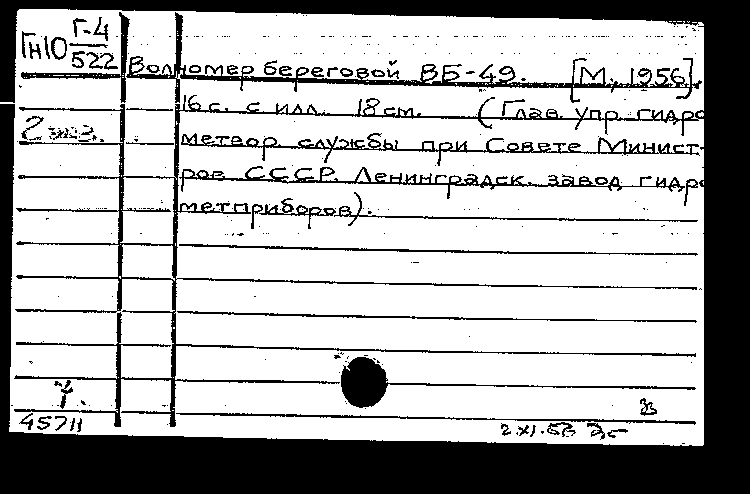 Гн10 Г-4
522
Волномер береговой ВБ-49. [М., 1956].
16 с. с илл. 18 см. (Глав. упр. гидро
2 экз.
метеор службы при Совете Минист-
ров СССР. Ленинградск. завод гидро
метприборов).
45711
2.XI.56